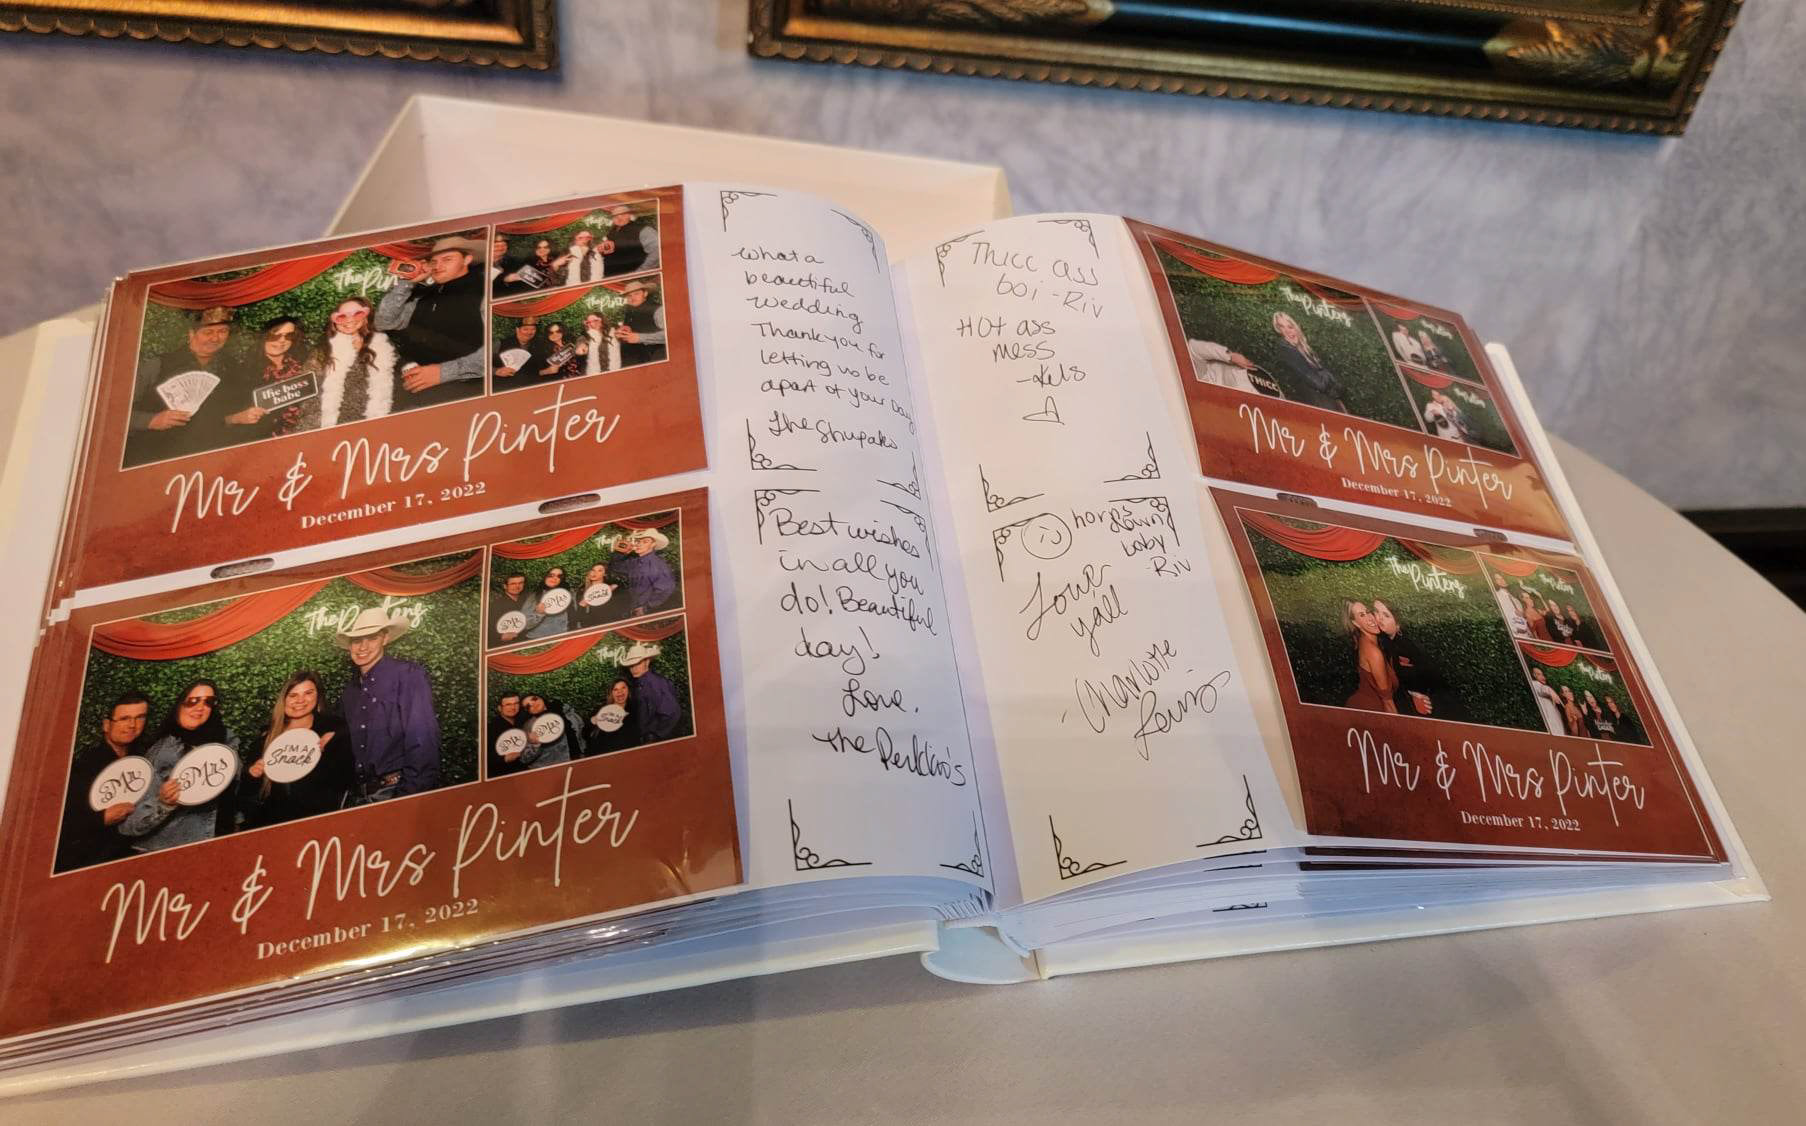 The Pin
the boss
babe
The Pin
The Pinte
Mr & Mrs Pinter
December 17, 2022
The Pinters
Mr
Mrs
I'M A
Snack
Mr
Mrs
I'M A
Snack
The Pin
Mr
Mrs
Mr & Mrs Pinter
December 17, 2022
What a
beautiful
wedding
Thank you for
letting us be
apart of your Day
The Shupaks
Best wishes
in all you
do! Beautiful
day!
Love,
The
Thicc ass
boi -Riv
HOt ass
mess
-Kels
horns
down
baby
Riv
Love
y'all
- Charlotte
The Pinters
THICC
Mr & Mrs Pinter
December 17, 2022
The Pinters
Mr & Mrs Pinter
December 17, 2022